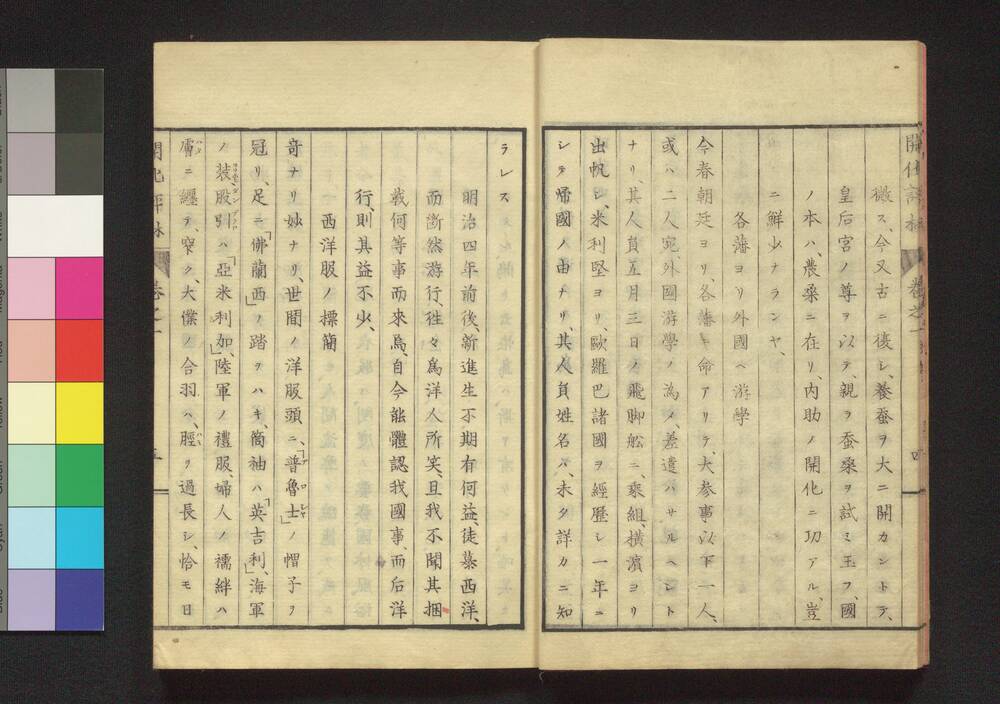 開化評林 卷之一 四
徴ス、今又古ニ復シ、養蚕ヲ大ニ開カシトテ、
皇后宮ノ尊ヲ以テ、親ヲ蚕桑ヲ試ミ玉フ、國
ノ本ハ、農桑ニ在リ、内助ノ開化ニ功アル、豈
ニ鮮少ナランヤ、
各藩ヨリ外國ヘ游學
今春朝廷ヨリ、各藩ヘ命アリテ、大参事以下一人、
或ハ二人宛、外國游學ノ為メ、差遣ハサルヘシト
ナリ、其人員五月三日ノ飛脚舩ニ、乘組、横濱ヨリ
出帆シ、米利堅ヨリ、歐羅巴諸國ヲ經歴シ一年ニ
シテ帰國ノ由ナリ、其人員姓名ハ、未タ詳カニ知
ラレス
明治四年前後、新進生不期有何益、徒慕西洋、
而斷然游行、徃々為洋人所笑、且我不聞其捆
載何等事而來焉、自今能體認我國事、而后洋
行、則其益不少、
西洋服ノ標簡
奇ナリ妙ナリ、世間ノ洋服頭ニ、「普魯士」ノ帽子ヲ
冠リ、足ニ「佛蘭西」ノ踏ヲハキ、筒袖ハ「英吉利」海軍
ノ装、股引ハ「亞米利加」陸軍ノ禮服、婦人ノ襦絆ハ
膚ニ纒テ、窄ク、大僕ノ合羽ハ、脛ヲ過長シ、恰モ日
開化評林 卷之一